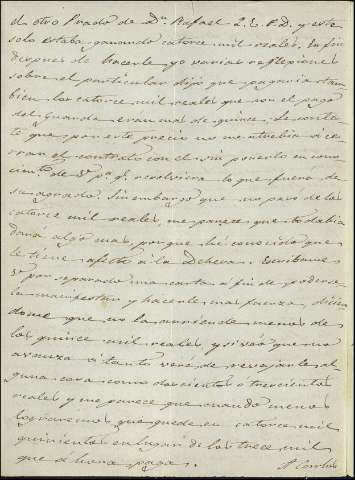 el otro Prado de Dn. Rafael Q. E. P. D. y este
solo estaba ganando catorce mil reales. En fin
despues de hacerle yo varias reflexiones
sobre el particular dijo que pagaria tam-
bien los catorce mil reales que con el pago
del Guarda eran mas de quince. Le contes-
té que por este precio no me atrebia á cer-
rar el contrato con él sin ponerlo en cono-
cim.to de V. pa. q.e resolviera lo que fuera de
su agrado. Sin embargo que no pasó de los
catorce mil reales, me parece que todabia
dará algo mas por que hé conocido que
le tiene afecto á la Dehesa. Escribame
V. por separado una carta á fin de poderse-
la manifestar y hacerle mas fuerza, dicien-
dome que no la arriende menos de
los quince mil reales y si veo que no
avanza á tanto veré de revajarle al-
guna cosa como doscientos ó trescientos
reales y me parece que cuando menos
lograremos que quede en catorce mil
quinientos en lugar de los trece mil
que ahora paga.